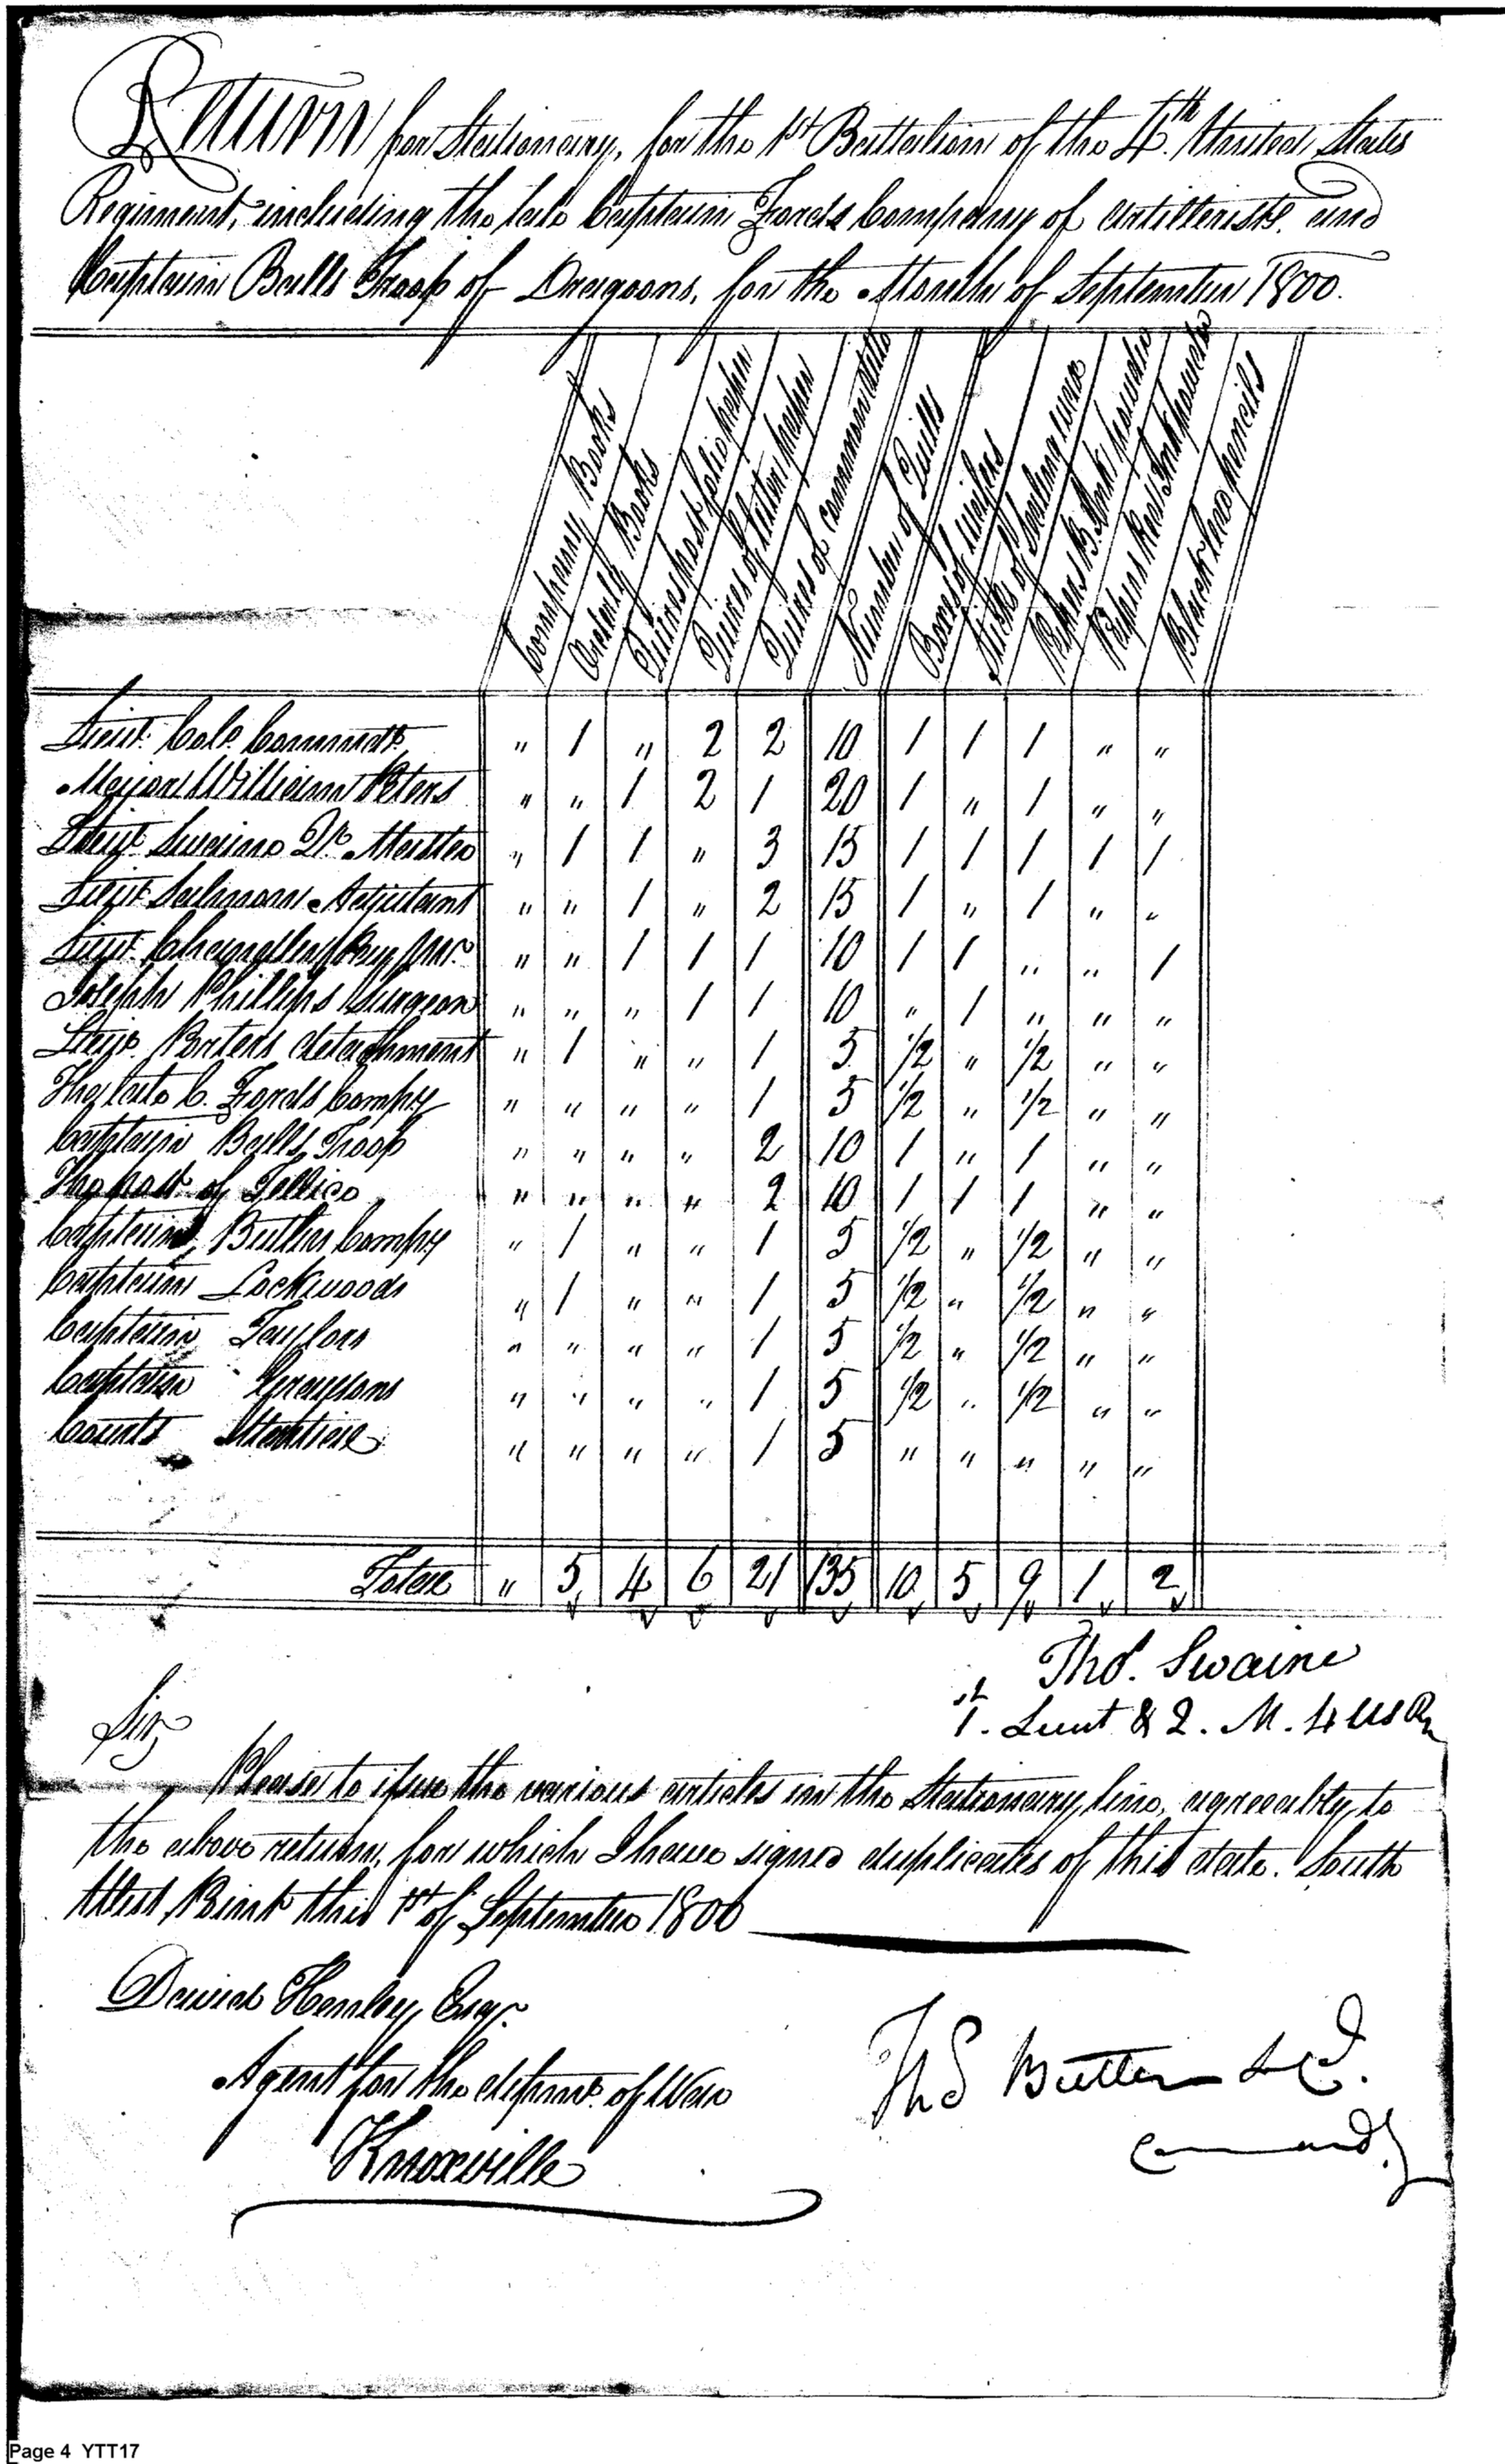 Return for Stationary, for the 1st Battalion of the 4th United States
Regiment, including the late Captain Fords Company of Artillerists, and
Captain Balls Troop of Dragoons, for the Month of September 1800.
Company Books
Orderly Books
Quires post folio paper
Quires of letter paper
Quires of common ditto
Number of Quills
Boxes of wafers
Sticks of Sealing wax
Papers B. Ink powder
Papers Red Ink powder
Black lead pencils
Lieut. Colo. Commdt. " 1 " 2 2 10 1 1 1 " "
Major William Peters " " 1 2 1 20 1 " 1 " "
Lieut. Swaine Qr. Master " 1 1 " 3 15 1 1 1 1 1
Lieut. Salmon Adjutant " " 1 " 2 15 1 " 1 " "
Lieut. Pay Mr. " " 1 1 1 10 1 1 " " 1
Joseph Phillips Surgeon " " " 1 1 10 " 1 " " "
Lieut. Porters detachment " 1 " " 1 5 1/2 " 1/2 " "
The late C. Fords Compy " " " " 1 5 1/2 " 1/2 " "
Captain Balls Troop " " " " 2 10 1 " 1 " "
The post of Tellico " " " " 2 10 1 1 1 " "
Captain Butler Compy " 1 " " 1 5 1/2 " 1/2 " "
Captain Lockwoods " 1 " " 1 5 1/2 " 1/2 " "
Captain Taylors " " " " 1 5 1/2 " 1/2 " "
Captain Graysons " " " " 1 5 1/2 " 1/2 " "
Courts Martial " " " " 1 5 " " " " "
Total " 5 4 6 21 135 10 5 9 1 2
Thos. Swaine
1st. Lieut & Q. M. 4 US R
Sir,
Please to issue the various articles in the Stationary line, agreeably to
the above return, for which I have signed duplicates of this date. South
West Point this 1st of September 1800
David Henley Esqr.
Agent for the departmt. of War
Knoxville
Thos Butler Lt Col.
Commandg
Page 4 YTT17